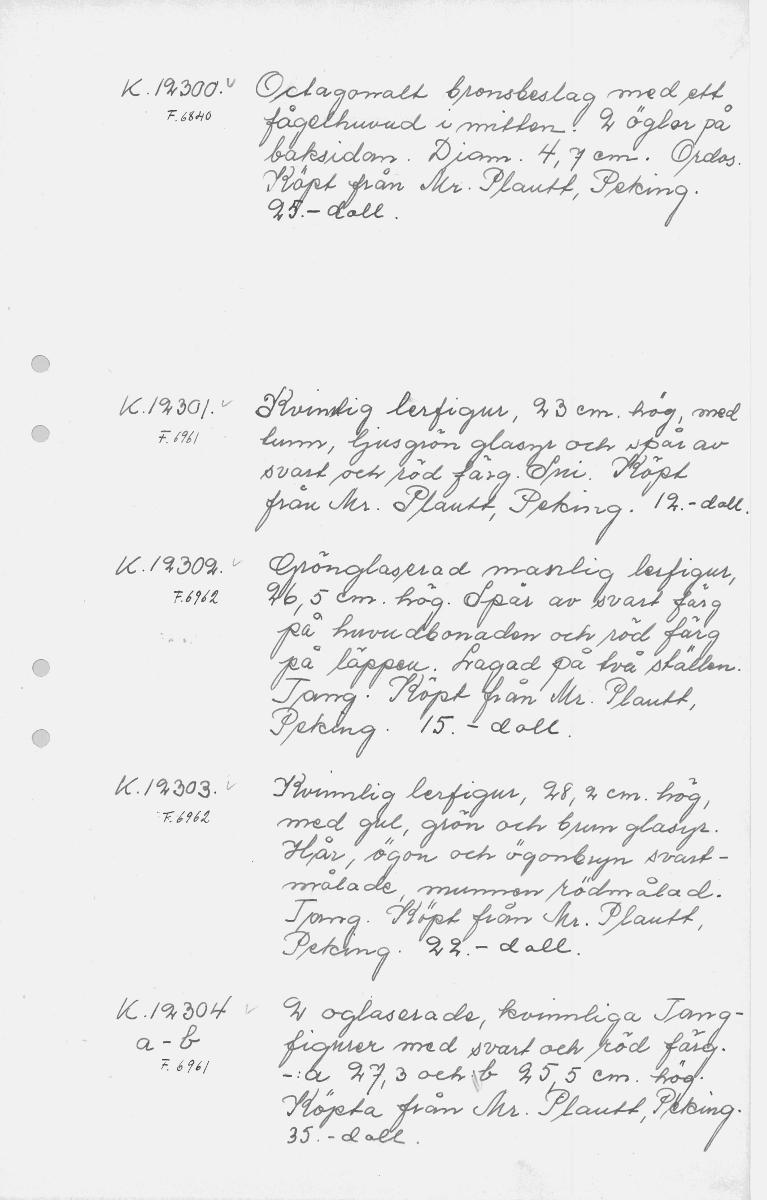 K.12300. Octagonalt bronsbeslag med ett
F.6840 fågelhuvud i mitten. 2 öglor på
baksidan. Diam. 4,7 cm. Ordos.
Köpt från Mr. Plautt, Peking.
25.- doll.
K.12301. Kvinnlig lerfigur, 23 cm. hög, med
F.6961 tunn, ljusgrön glasyr och spår av
svart och röd färg. Sui. Köpt
från Mr. Plautt, Peking. 12.- doll.
K.12302. Grönglaserad manlig lerfigur,
F.6962 26,5 cm. hög. Spår av svart färg
på huvudbonaden och röd färg
på läppen. Lagad på två ställen.
Tang. Köpt från Mr. Plautt,
Peking. 15.- doll.
K.12303. Kvinnlig lerfigur, 28,2 cm. hög,
F.6962 med gul, grön och brun glasyr.
Hår, ögon och ögonbryn svart-
målade, munnen rödmålad.
Tang. Köpt från Mr. Plautt,
Peking. 22.- doll.
K.12304 2 oglaserade, kvinnliga Tang-
a-b figurer med svart och röd färg.
F.6961 -:a 27,3 och :b 25,5 cm. hög.
Köpta från Mr. Plautt, Peking.
35.- doll.